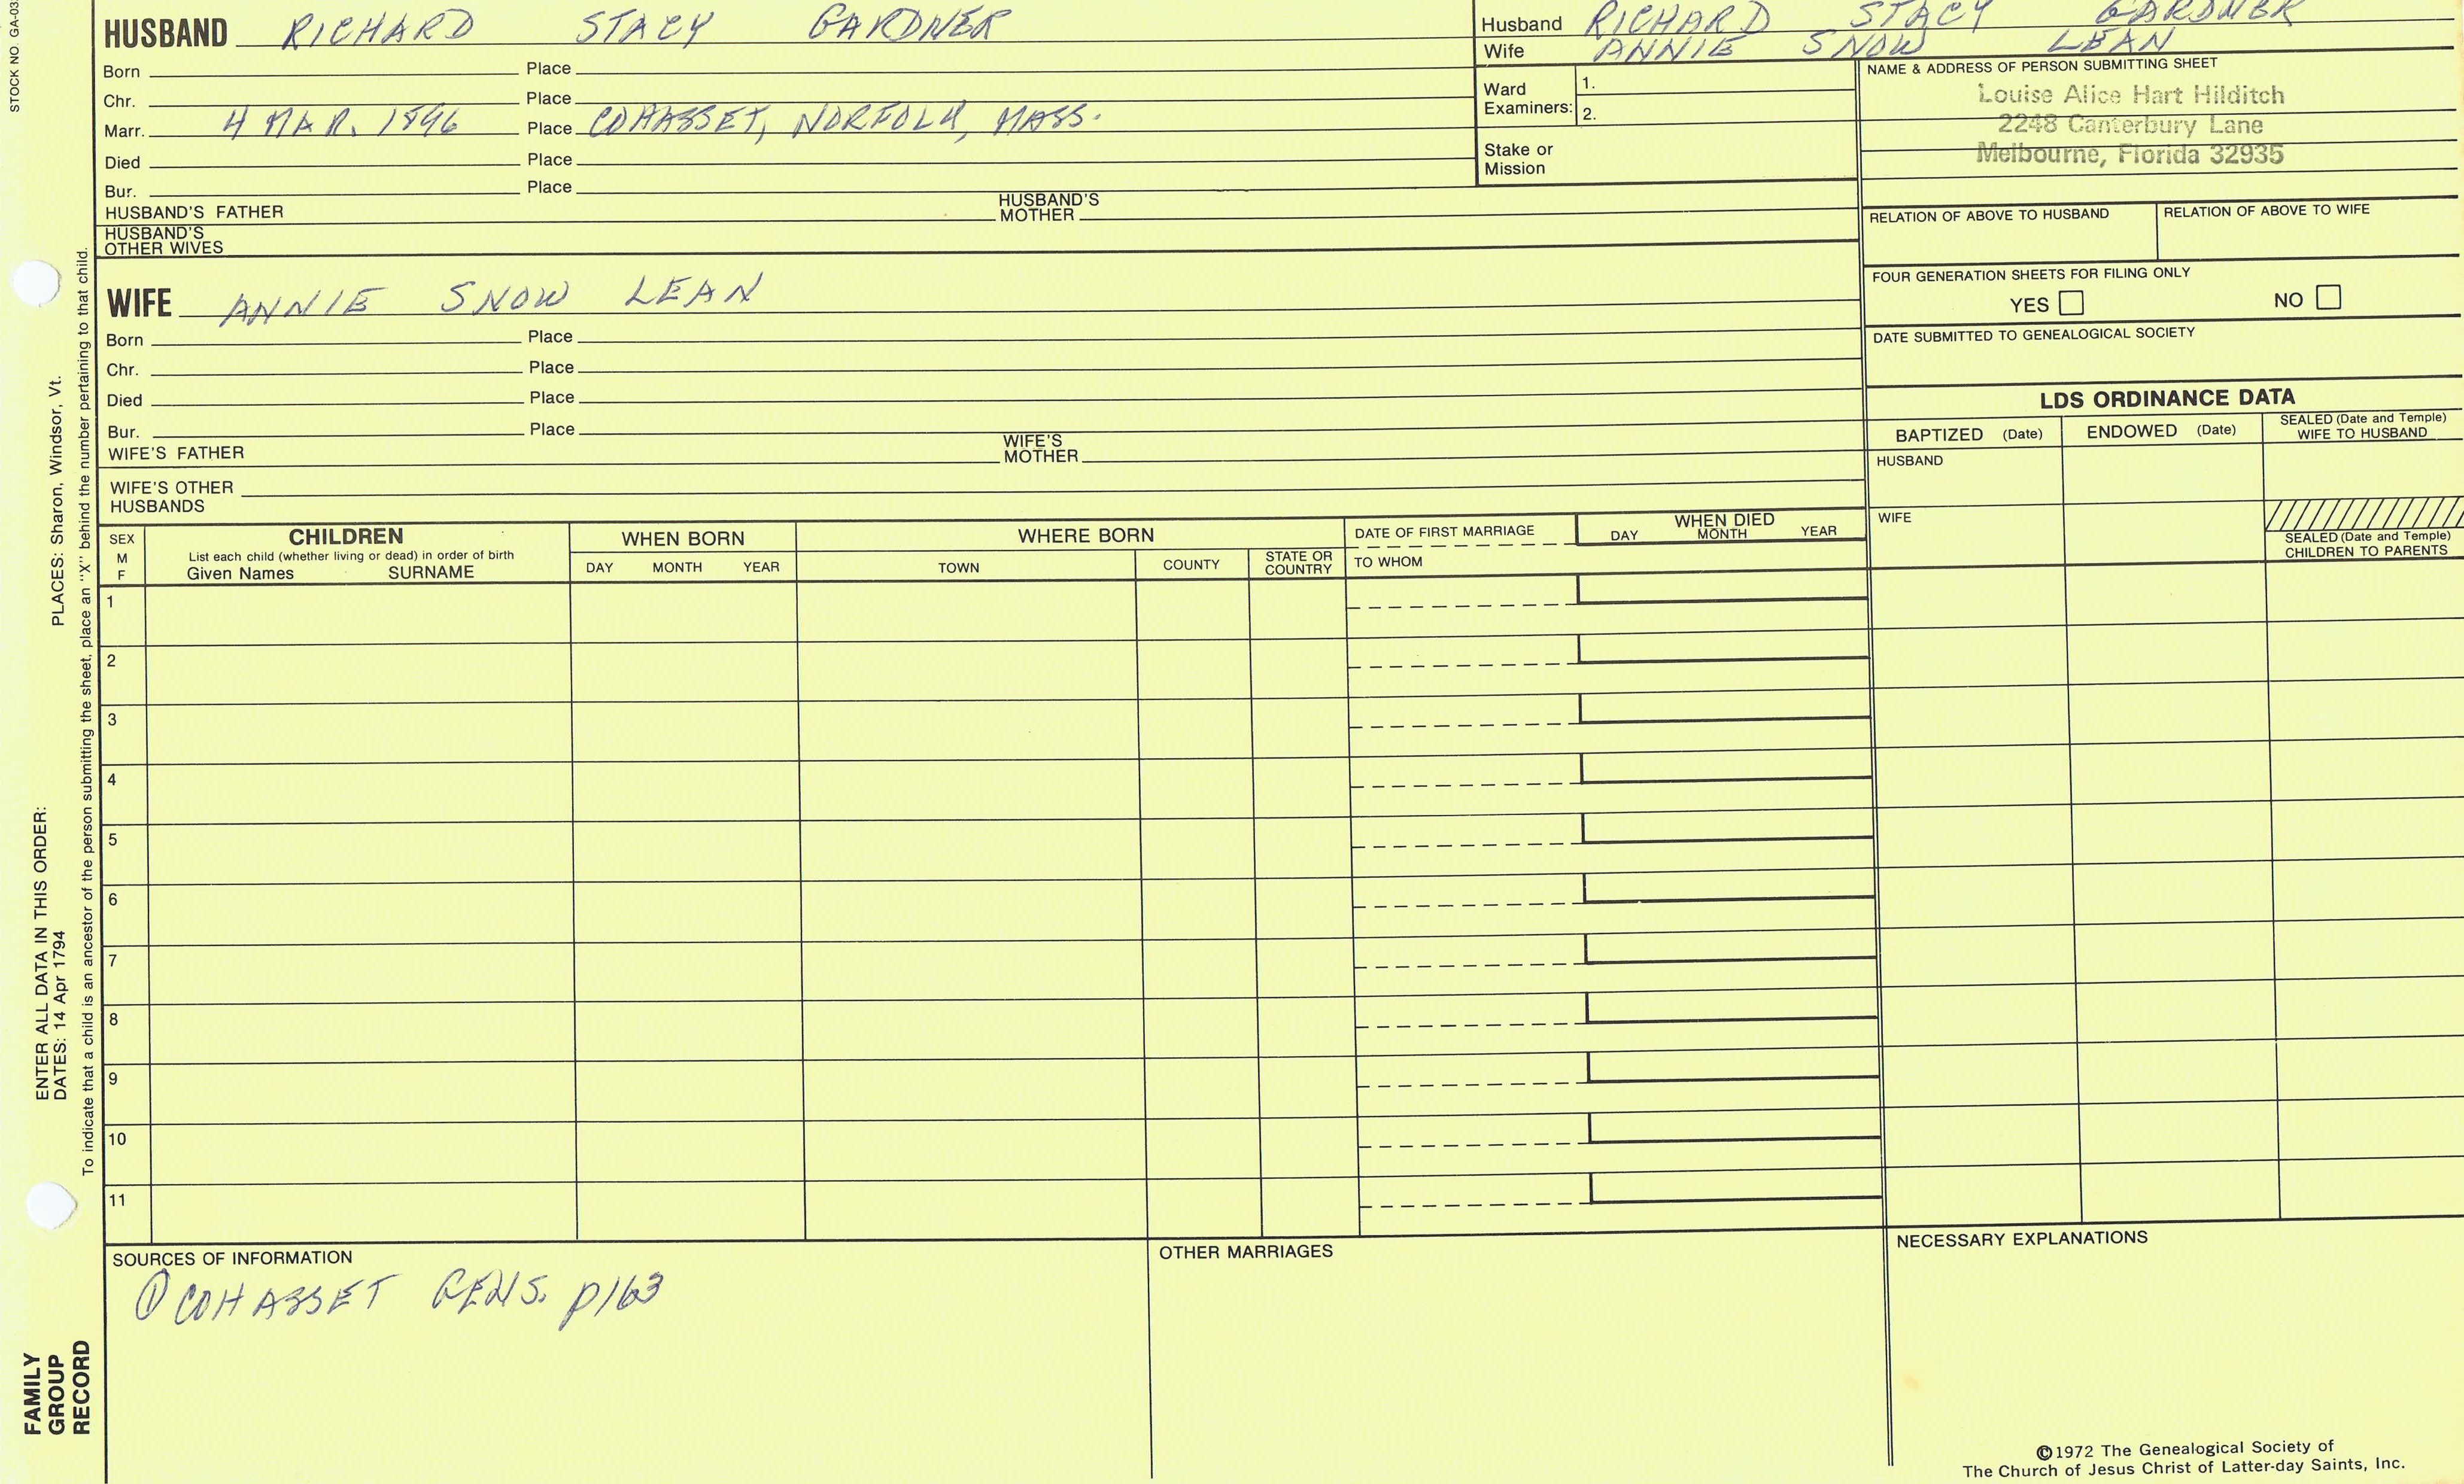 STOCK NO. GA-03
HUSBAND RICHARD STACY GARDNER
Born Place
Chr. Place
Marr. 4 MAR. 1896 Place COHASSET, NORFOLK, MASS.
Died Place
Bur. Place
HUSBAND'S FATHER HUSBAND'S MOTHER
HUSBAND'S OTHER WIVES
WIFE ANNIE SNOW LEAN
Born Place
Chr. Place
Died Place
Bur. Place
WIFE'S FATHER WIFE'S MOTHER
WIFE'S OTHER HUSBANDS
Husband RICHARD STACY GARDNER
Wife ANNIE SNOW LEAN
Ward Examiners: 1.
2.
Stake or Mission
NAME & ADDRESS OF PERSON SUBMITTING SHEET
Louise Alice Hart Hilditch
2248 Canterbury Lane
Melbourne, Florida 32935
RELATION OF ABOVE TO HUSBAND RELATION OF ABOVE TO WIFE
FOUR GENERATION SHEETS FOR FILING ONLY
YES NO
DATE SUBMITTED TO GENEALOGICAL SOCIETY
LDS ORDINANCE DATA
BAPTIZED (Date) ENDOWED (Date) SEALED (Date and Temple) WIFE TO HUSBAND
HUSBAND
WIFE
SEALED (Date and Temple) CHILDREN TO PARENTS
SEX M F
CHILDREN
List each child (whether living or dead) in order of birth
Given Names SURNAME
WHEN BORN
DAY MONTH YEAR
WHERE BORN
TOWN COUNTY STATE OR COUNTRY
DATE OF FIRST MARRIAGE
TO WHOM
WHEN DIED
DAY MONTH YEAR
1
2
3
4
5
6
7
8
9
10
11
SOURCES OF INFORMATION
① COHASSET GENS. p163
OTHER MARRIAGES
NECESSARY EXPLANATIONS
©1972 The Genealogical Society of
The Church of Jesus Christ of Latter-day Saints, Inc.
FAMILY
GROUP
RECORD
ENTER ALL DATA IN THIS ORDER:
DATES: 14 Apr 1794 PLACES: Sharon, Windsor, Vt.
To indicate that a child is an ancestor of the person submitting the sheet, place an "X" behind the number pertaining to that child.